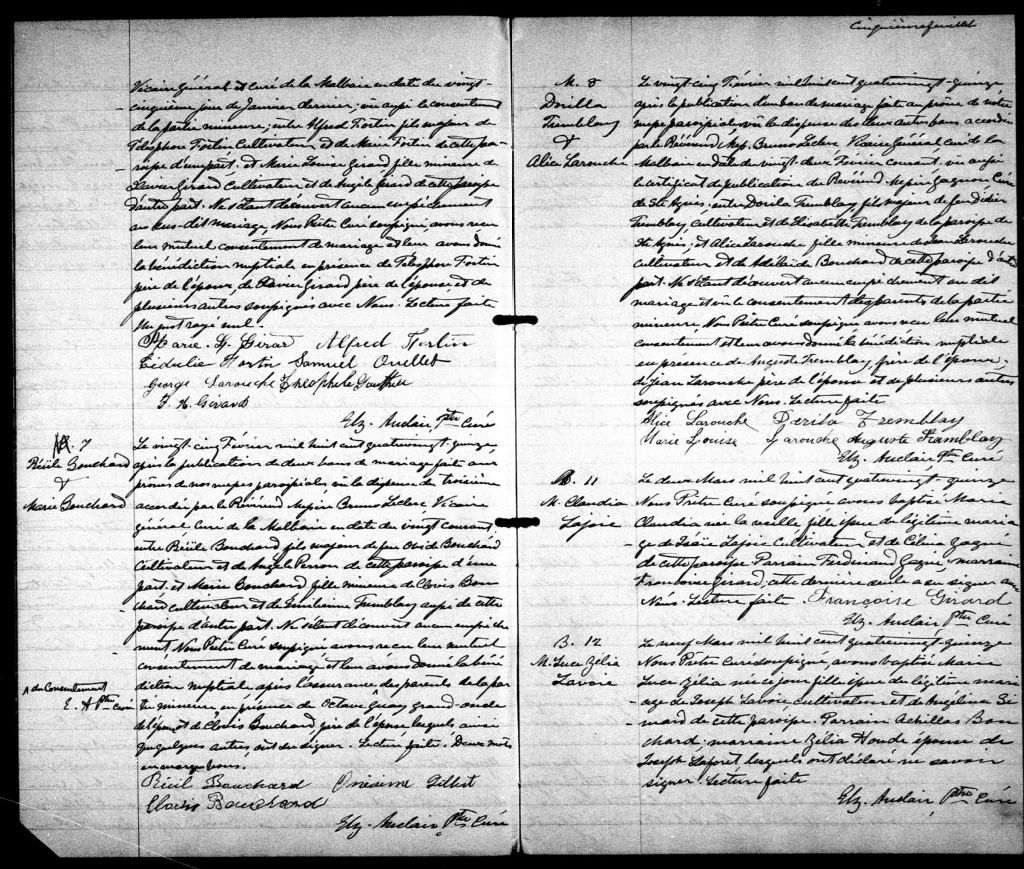 Vicaire Général et Curé de la Malbaie en date du vingt-
cinquième jour de Janvier dernier; vu aussi le consentement
de la partie mineure; entre Alfred Fortin fils majeur de
Télesphore Fortin Cultivateur et de Marie Fortin de cette pa-
roisse d'une part, et Marie Louise Girard fille mineure de
Xavier Girard Cultivateur et de Angèle Girard de cette paroisse
d'autre part. Ne s'étant découvert aucun empêchement
au sus-dit mariage, Nous Prêtre Curé soussigné, avons reçu
leur mutuel consentement de mariage et leur avons donné
la bénédiction nuptiale en présence de Télesphor Fortin
père de l'époux, de Xavier Girard père de l'épouse et de
plusieurs autres soussignés avec Nous. Lecture faite
Un mot rayé nul.
Marie L. Girard Alfred Fortin
Eidulie Fortin Samuel Ouellet
George Larouche Théophile Gauthier
F. X. Girard
Elz. Auclair Ptre Curé
M. 7
Béüle Bouchard
&
Marie Bouchard
Le vingt cinq Février mil huit cent quatrevingt-quinze,
après la publication de deux bans de mariage faite aux
prônes de nos messes paroissiales, vu la dispense du troisième
accordée par le Révérend Messire Bruno Leclerc, Vicaire
général, Curé de la Malbaie en date du vingt courant,
entre Béüle Bouchard, fils majeur de feu Ovide Bouchard
Cultivateur et de Angèle Perron de cette paroisse d'une
part, et Marie Bouchard, fille mineure de Clovis Bou-
chard cultivateur et de Émilienne Tremblay aussi de cette
paroisse d'autre part. Ne s'étant découvert aucun empêche-
ment Nous Prêtre Curé soussigné avons reçu leur mutuel
consentement de mariage et leur avons donné la béné-
diction nuptiale après l'assurance des parents de la par-
^ du Consentement
E. A Ptre Curé
tie mineure en présence de Octave Guay grand-oncle
de l'époux, et de Clovis Bouchard, père de l'épouse lesquels ainsi
que quelques autres, ont su signer. Lecture faite. Deux mots
en marge bons.
Béül Bouchard Onésime Gilbert
Clovis Bouchard
Elz. Auclair, Ptre Curé
Cinquième feuillet
M. 8
Dorilla
Tremblay
&
Alice Larouche
Le vingt cinq Février mil huit cent quatrevingt-quinze,
après la publication d'un ban de mariage faite au prône de notre
messe paroissiale, vu la dispense des deux autres bans accordée
par le Révérend Msg. Bruno Leclerc Vicaire Général, curé de la
Malbaie en date du vingt-deux Février courant, vu aussi
le certificat de publication du Révérend Messire Gagnon Curé
de Ste Agnès; entre Dorila Tremblay, fils majeur de feu Didier
Tremblay, cultivateur et de Elisabeth Tremblay de la paroisse de
Ste Agnès; et Alice Larouche fille mineure de Jean Larouche
cultivateur et de Adélaïde Bouchard de cette paroisse d'autre
part. Ne s'étant découvert aucun empêchement au dit
mariage et vu le consentement des parents de la partie
mineure, Nous Prêtre Curé soussigné, avons reçu leur mutuel
consentement et leur avons donné la bénédiction nuptiale
en présence de Auguste Tremblay, frère de l'époux,
de Jean Larouche père de l'épouse et de plusieurs autres
soussignés avec Nous. Lecture faite
Alice Larouche Dorila Tremblay
Marie Louise Larouche Auguste Tramblay
Elz. Auclair Ptre Curé
B. 11
M. Claudia
Lajoie
Le deux Mars mil huit cent quatrevingt-quinze
Nous Prêtre Curé soussigné, avons baptisé Marie
Claudia née la veille, fille issue du légitime maria-
ge de Isaïe Lajoie Cultivateur et de Célina Gagné
de cette paroisse Parrain Ferdinand Gagné, marraine
Françoise Girard; cette dernière seule a su signer avec
Nous. Lecture faite. Françoise Girard
Elz. Auclair Ptre Curé
B. 12
M. Luce Zélia
Lavoie
Le neuf Mars mil huit cent quatrevingt quinze
Nous Prêtre Curé soussigné, avons baptisé Marie
Luce Zélia née ce jour, fille issue du légitime mari-
age de Joseph Lavoie, cultivateur et de Angélina Si-
mard de cette paroisse. Parrain Achillas Bou-
chard; marraine Zélia Houde épouse de
Joseph Laforet, lesquels ont déclaré ne savoir
signer. Lecture faite
Elz. Auclair, Ptre Curé